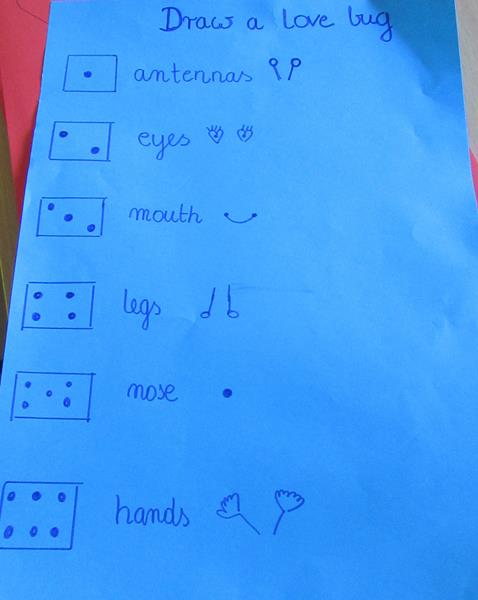 Draw a love bug
antennas
eyes
mouth
legs
nose
hands